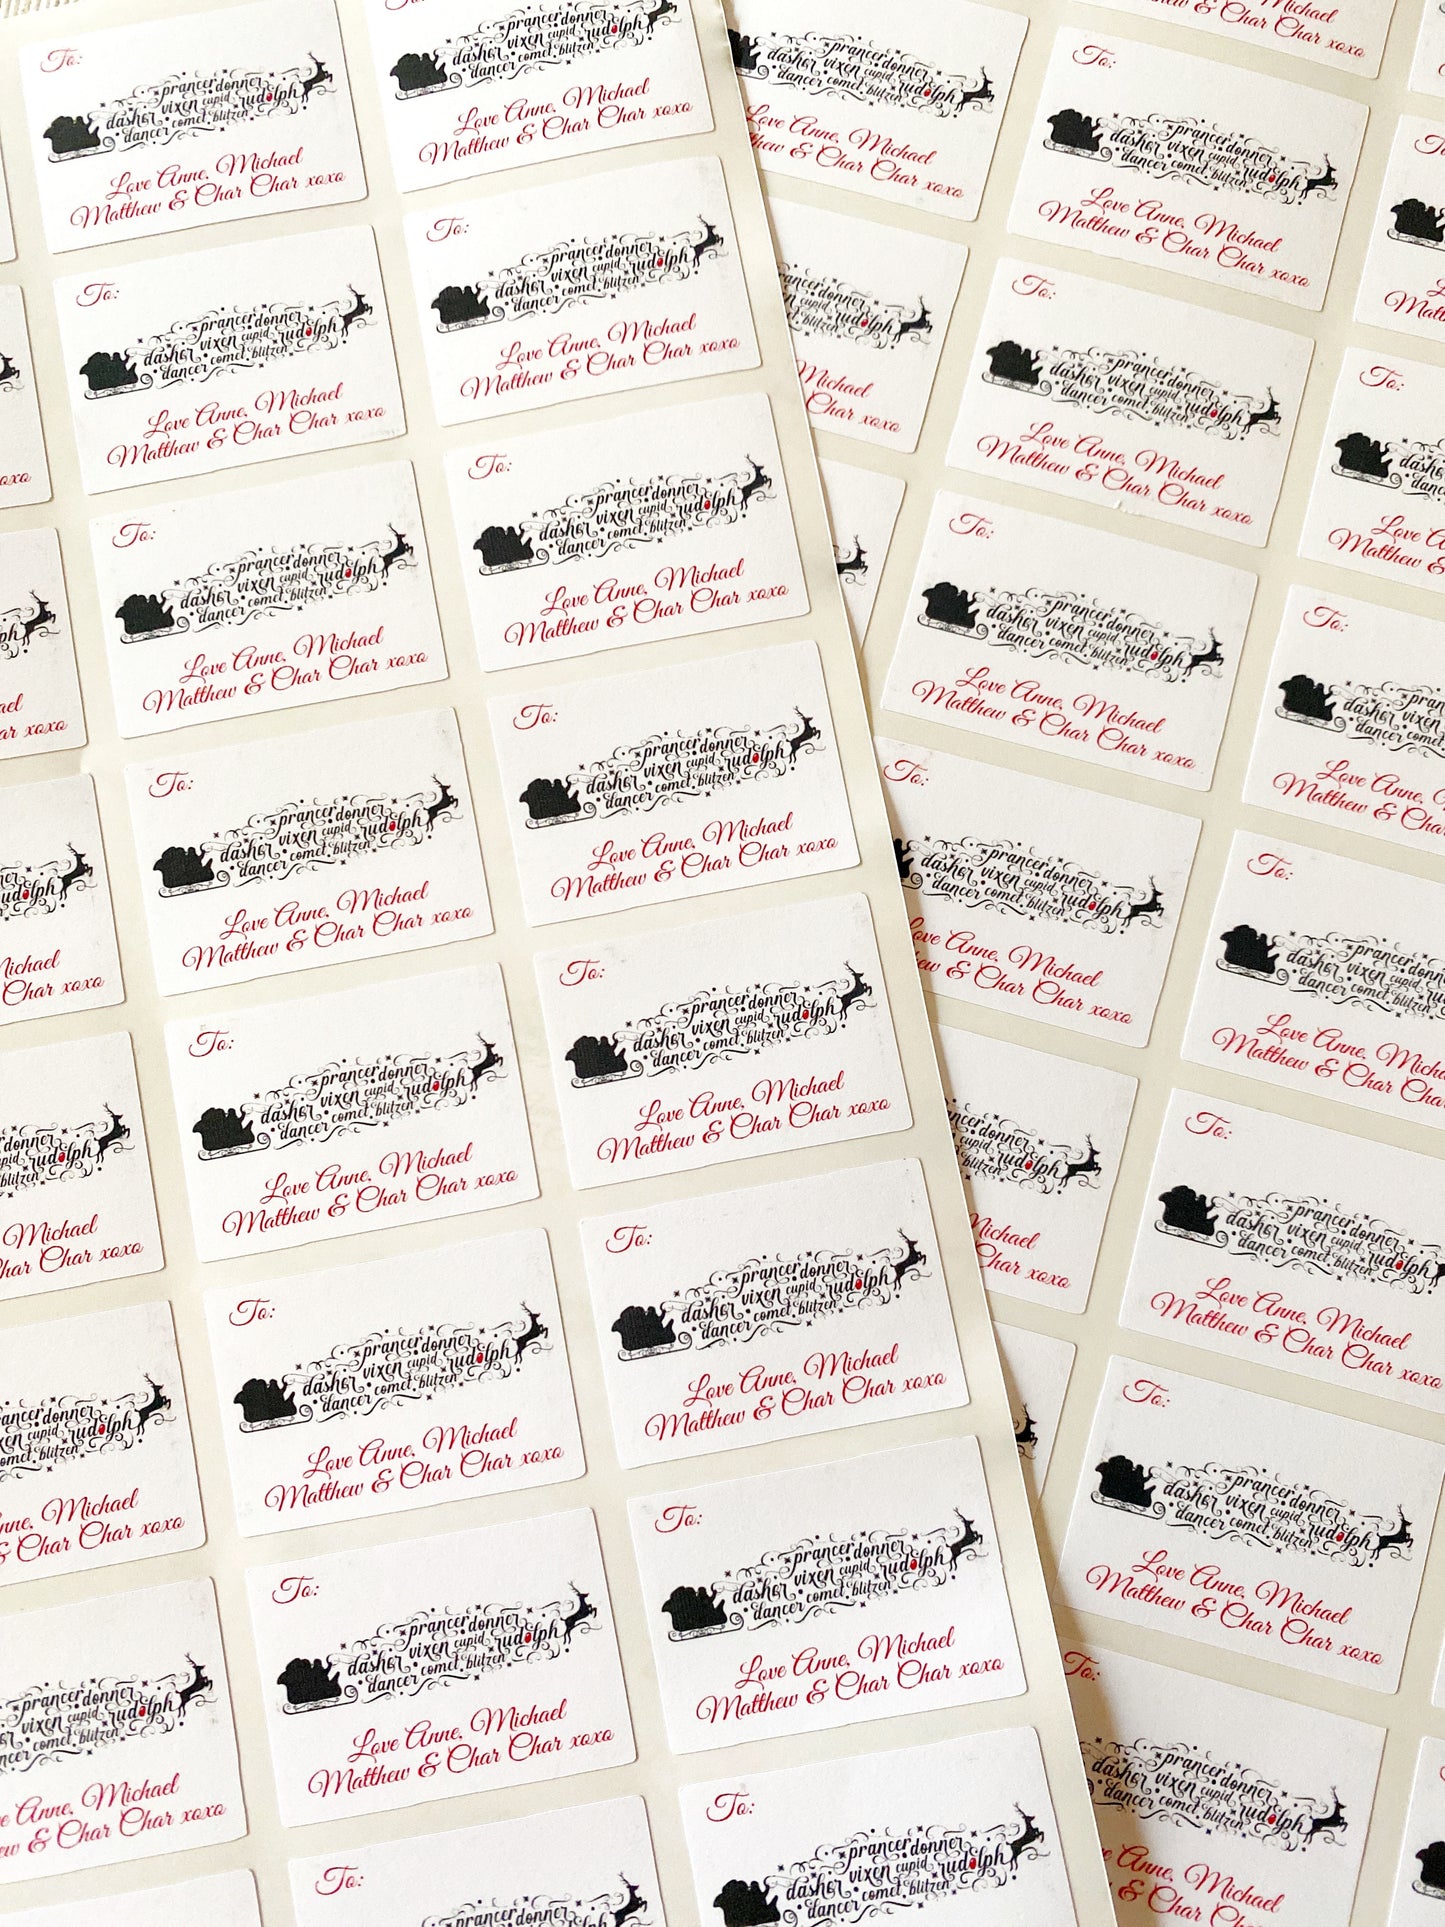 To:
prancer donner
dasher vixen cupid rudolph
dancer comet blitzen
Love Anne, Michael
Matthew & Char Char xoxo
To:
prancer donner
dasher vixen cupid rudolph
dancer comet blitzen
Love Anne, Michael
Matthew & Char Char xoxo
To:
prancer donner
dasher vixen cupid rudolph
dancer comet blitzen
Love Anne, Michael
Matthew & Char Char xoxo
To:
prancer donner
dasher vixen cupid rudolph
dancer comet blitzen
Love Anne, Michael
Matthew & Char Char xoxo
To:
prancer donner
dasher vixen cupid rudolph
dancer comet blitzen
Love Anne, Michael
Matthew & Char Char xoxo
To:
prancer donner
dasher vixen cupid rudolph
dancer comet blitzen
Love Anne, Michael
Matthew & Char Char xoxo
To:
prancer donner
dasher vixen cupid rudolph
dancer comet blitzen
Love Anne, Michael
Matthew & Char Char xoxo
To:
prancer donner
prancer donner
dasher vixen cupid rudolph
dancer comet blitzen
Love Anne, Michael
Matthew & Char Char xoxo
To:
prancer donner
dasher vixen cupid rudolph
dancer comet blitzen
Love Anne, Michael
Matthew & Char Char xoxo
To:
prancer donner
dasher vixen cupid rudolph
dancer comet blitzen
Love Anne, Michael
Matthew & Char Char xoxo
To:
prancer donner
dasher vixen cupid rudolph
dancer comet blitzen
Love Anne, Michael
Matthew & Char Char xoxo
To:
prancer donner
dasher vixen cupid rudolph
dancer comet blitzen
Love Anne, Michael
Matthew & Char Char xoxo
To:
prancer donner
dasher vixen cupid rudolph
dancer comet blitzen
Love Anne, Michael
Matthew & Char Char xoxo
To:
prancer donner
dasher vixen cupid rudolph
dancer comet blitzen
Love Anne, Michael
Matthew & Char Char xoxo
To:
prancer donner
dasher vixen cupid rudolph
dancer comet blitzen
To:
prancer donner
dasher vixen cupid rudolph
dancer comet blitzen
Love Anne, Michael
Matthew & Char Char xoxo
To:
prancer donner
dasher vixen cupid rudolph
dancer comet blitzen
Love Anne, Michael
Matthew & Char Char xoxo
To:
prancer donner
dasher vixen cupid rudolph
dancer comet blitzen
Love Anne, Michael
Matthew & Char Char xoxo
To:
prancer donner
dasher vixen cupid rudolph
dancer comet blitzen
Anne, Michael
& Char Char xoxo
To:
prancer donner
dasher vixen cupid
dancer comet blitzen
Love Anne, Michael
Matthew & Char Char xoxo
To:
prancer donner
dasher vixen cupid rudolph
dancer comet blitzen
Love Anne, Michael
Matthew & Char Char xoxo
To:
prancer donner
dasher vixen cupid rudolph
dancer comet blitzen
Anne, Michael
& Char Char xoxo